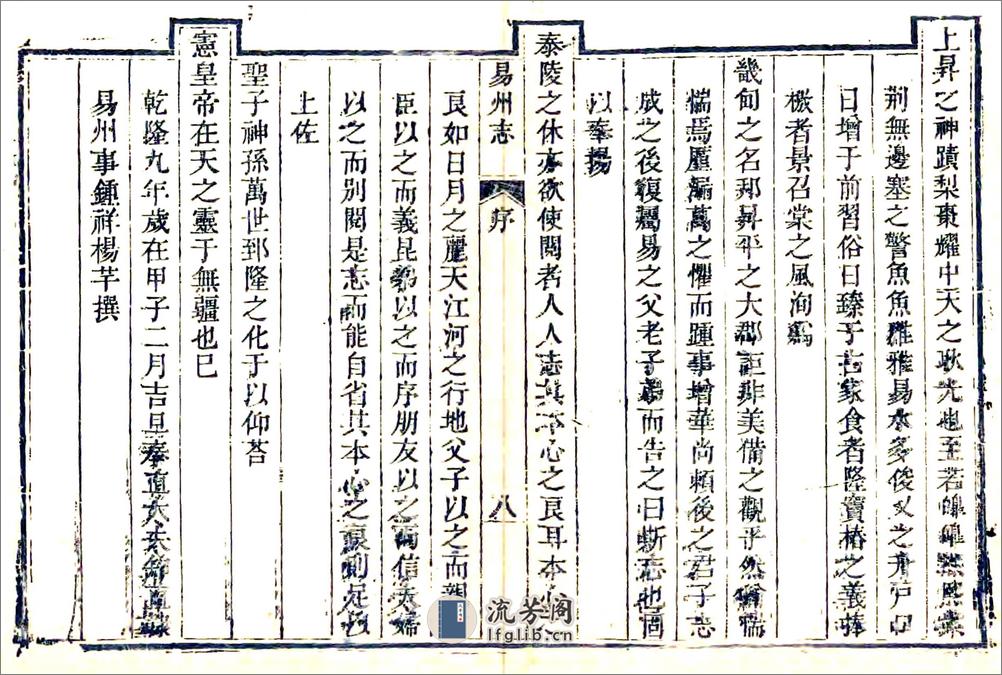 上昇之神蹟梨棗耀中天之耿光也至若皥皥熙熙
荆無邊塞之警魚魚雅雅易水多俊乂之升戸口
日增于前習俗日臻于古家食者隆寶椿之義
檄者景召棠之風洵爲
畿甸之名邦昇平之大郡詎非美備之觀乎然惴惴
惴焉厪漏萬之懼而踵事增華尚賴後之君子志
成之後復屬易之父老子弟而告之曰斯志也固
以奉揚
泰陵之休亦欲使閱者人人志其本心之良耳本心
易州志
序
八
良如日月之麗天江河之行地父子以之而親
臣以之而義昆弟以之而序朋友以之而信夫婦
以之而別閱是志而能自省其本心之良則足
上佐
聖子神孫萬世郅隆之化于以仰荅
憲皇帝在天之靈于無疆也巳
乾隆九年歲在甲子二月吉旦奉直大夫知直隸
易州事鍾祥楊芊撰
流芳阁
lfglib.cn